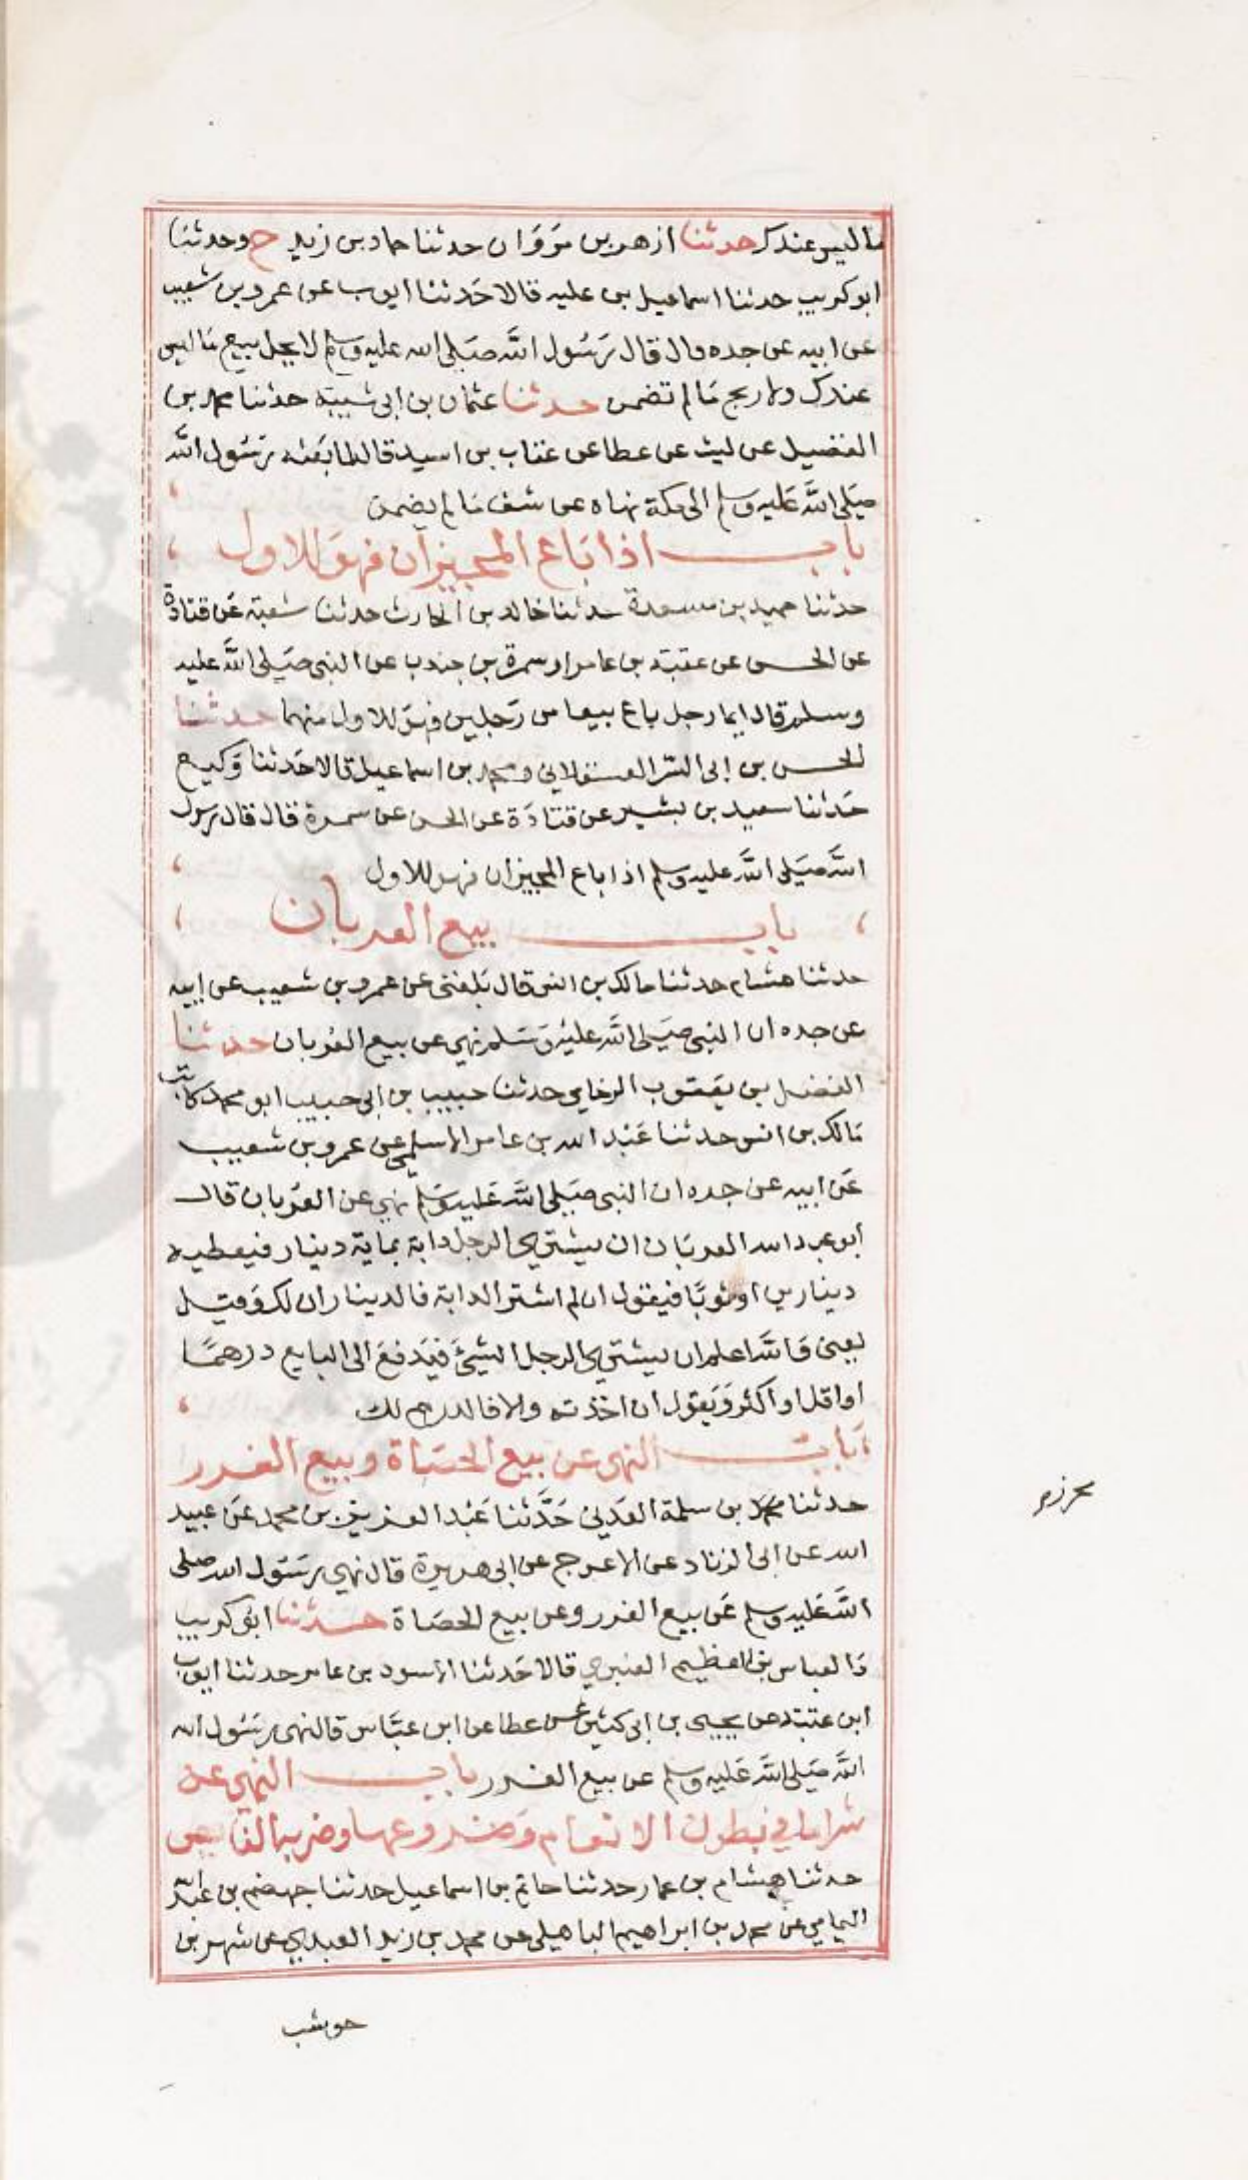 ما ليس عندك حدثنا ازهر بن مروان حدثنا حماد بن زيد ح وحدثنا
ابو كريب حدثنا اسماعيل بن عليه قالا حدثنا ايوب عن عمرو بن شعيب
عن ابيه عن جده قال قال رسول الله صلى الله عليه وسلم لا يحل بيع ما ليس
عندك ولا ربح ما لم تضمن حدثنا عثمان بن ابى شيبة حدثنا محمد بن
الفضيل عن ليث عن عطا عن عتاب بن اسيد قال لما بعثه رسول الله
صلى الله عليه وسلم الى مكة نهاه عن شف ما لم يضمن
باب اذا باع المجيزان فهو للاول
حدثنا حميد بن مسعدة حدثنا خالد بن الحارث حدثنا شعبة عن قتادة
عن الحسن عن عقبة بن عامر او سمرة بن جندب عن النبى صلى الله عليه
وسلم قال ايما رجل باع بيعا من رجلين فهو للاول منهما حدثنا
الحسن بن ابى السر العسقلانى ومحمد بن اسماعيل قالا حدثنا وكيع
حدثنا سعيد بن بشير عن قتادة عن الحسن عن سمرة قال قال رسول
الله صلى الله عليه وسلم اذا باع المجيزان فهو للاول
باب بيع العربان
حدثنا هشام حدثنا مالك بن انس قال بلغنى عن عمرو بن شعيب عن ابيه
عن جده ان النبى صلى الله عليه وسلم نهى عن بيع العربان حدثنا
الفضل بن يعقوب الرخامي حدثنا حبيب بن ابى حبيب ابو محمد كاتب
مالك بن انس حدثنا عبد الله بن عامر الاسلمي عن عمرو بن شعيب
عن ابيه عن جده ان النبى صلى الله عليه وسلم نهي عن العربان قال
ابو عبد الله العربان ان يشتري الرجل دابة بماية دينار فيعطيه
دينارين اوثوبا فيقول ان لم اشتر الدابة فالديناران لك وقيل
يعنى والله اعلم ان يشتري الرجل الشئ فيدفع الى البايع درهما
او اقل او اكثر ويقول ان اخذته والا فالدرهم لك
باب النهى عن بيع الحصاة وبيع الغرر
حدثنا محمد بن سلمة العدنى حدثنا عبد العزيز بن محمد عن عبيد
الله عن ابى الزناد عن الاعرج عن ابى هريرة قال نهي رسول الله صلى
الله عليه وسلم عن بيع الغرر وعن بيع الحصاة حدثنا ابو كريب
والعباس بن العظيم العنبري قالا حدثنا الاسود بن عامر حدثنا ايوب
ابن عتبة عن يحيى بن ابى كثير عن عطا عن ابن عباس قال نهى رسول الله
الله صلى الله عليه وسلم عن بيع الغرر باب النهى عن
شرا ما في بطون الانعام وضروعها وضربة القايص
حدثنا هشام بن عمار حدثنا حاتم بن اسماعيل حدثنا جهضم بن عبد الله
اليمامي عن محمد بن ابراهيم الباهلي عن محمد بن زيد العبدي عن شهر بن
حوشب